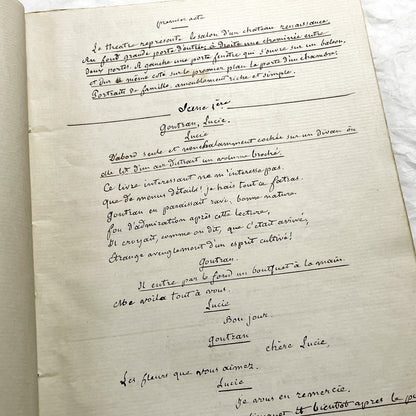 premier acte
Le théatre represente le salon d'un chateau renaissance
Au fond grande porte d'entrée, à droite une cheminée entre
deux portes. A gauche une porte fenêtre qui s'ouvre sur un balcon,
et du même coté sur le premier plan la porte d'un chambre.
Portraits de famille, ameublement riche et simple.
Scene 1ère
Goutran, Lucie,
Lucie
D'abord seule et nonchalamment couchée sur un divan où
elle lit d'un air distrait un volume broché.
Ce livre interessant ne m'interesse pas,
que de menus détails! je hais tout ce fatras.
Goutran en paraissait ravi, bonne nature.
fou d'admiration après cette lecture,
Il croyait, comme on dit, que c'était arrivé,
Etrange aveuglement d'un esprit cultivé!
Goutran.
Il entre par le fond un boutquet à la main.
Me voila tout à vous.
Lucie
Bon jour.
Goutran
chère Lucie,
Les fleurs que vous aimez.
Lucie
Je vous en remercie.
et bientot après le